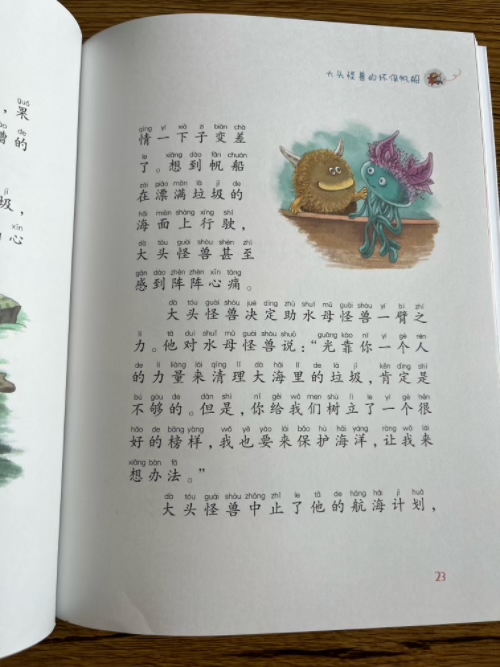 果
糟的
圾，
心
大头怪兽的环保帆船
qíng yí xià zi biàn chà
情一下子变差
le xiǎng dào fān chuán
了。想到帆船
zài piāo mǎn lā jī de
在漂满垃圾的
hǎi miàn shàng xíng shǐ
海面上行驶，
dà tóu guài shòu shèn zhì
大头怪兽甚至
gǎn dào zhèn zhèn xīn tòng
感到阵阵心痛。
dà tóu guài shòu jué dìng zhù shuǐ mǔ guài shòu yí bì zhī
大头怪兽决定助水母怪兽一臂之
lì tā duì shuǐ mǔ guài shòu shuō guāng kào nǐ yí gè rén
力。他对水母怪兽说：“光靠你一个人
de lì liàng lái qīng lǐ dà hǎi lǐ de lā jī kěn dìng shì
的力量来清理大海里的垃圾，肯定是
bú gòu de dàn shì nǐ gěi wǒ men shù lì le yí gè hěn
不够的。但是，你给我们树立了一个很
hǎo de bǎng yàng wǒ yě yào lái bǎo hù hǎi yáng ràng wǒ lái
好的榜样，我也要来保护海洋，让我来
xiǎng bàn fǎ
想办法。”
dà tóu guài shòu zhōng zhǐ le tā de háng hǎi jì huà
大头怪兽中止了他的航海计划，
23